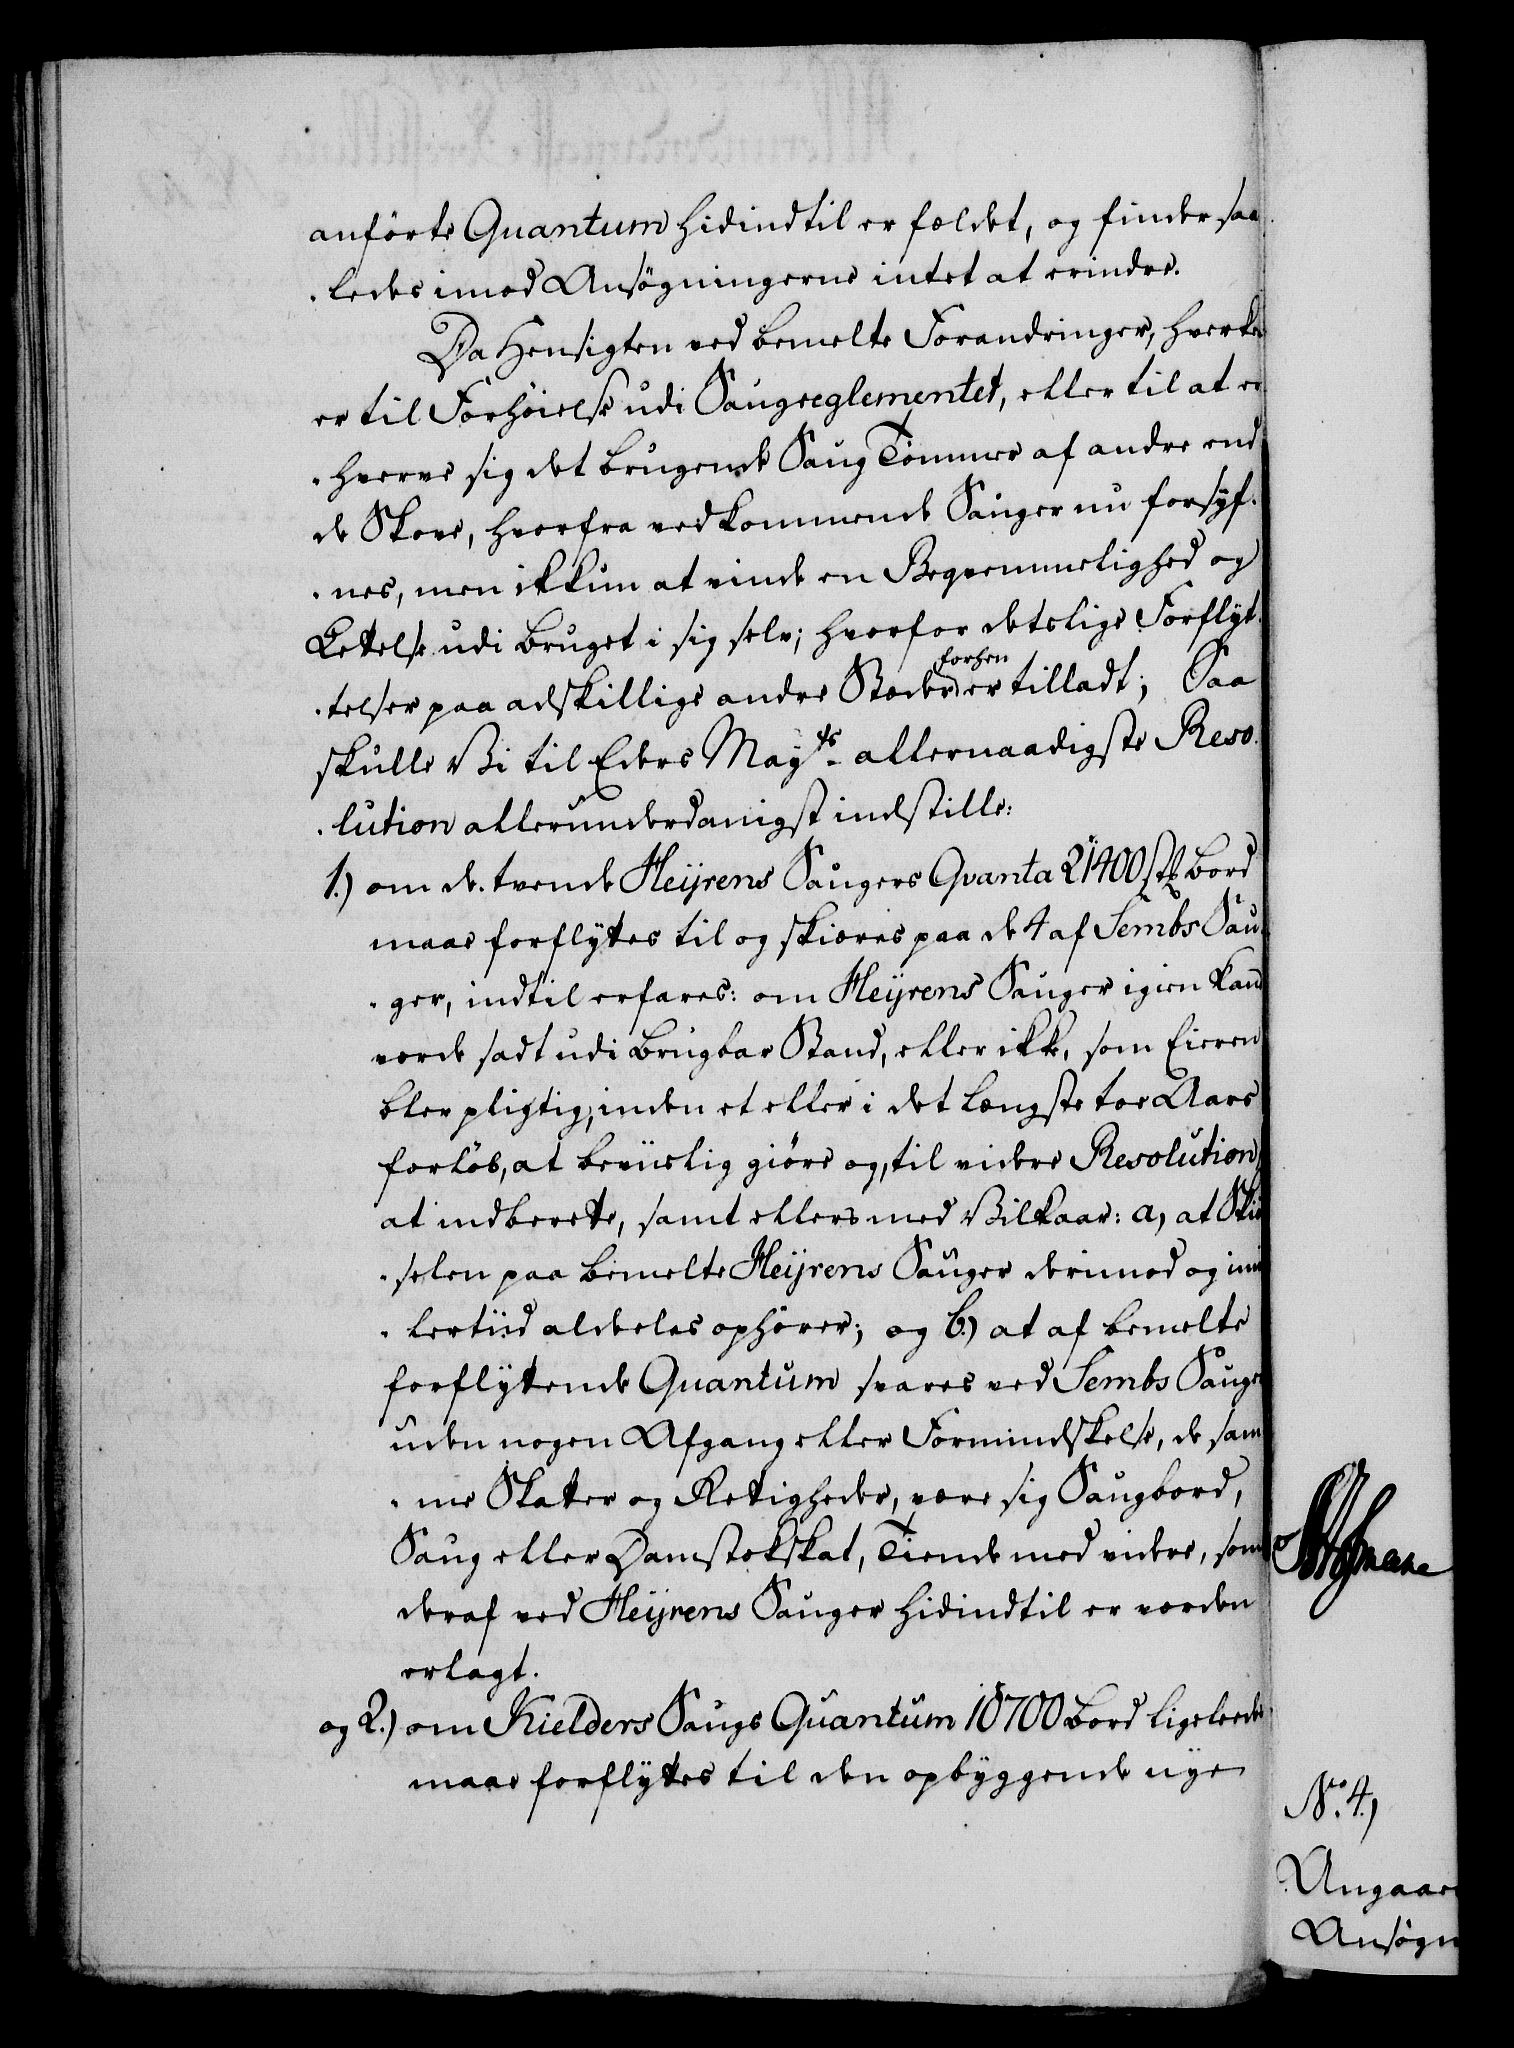 anförte Quantum hidindtil er fældet, og finder saa
ledes imod Ansögningerne intet at erindre.
Da Hensigten ved bemelte Forandringer, hverken
er til Forhöielse udi Saugreglementet, eller til at er
hverve sig det brugende Saug Tömmer af andre end
de Skove, hvorfra vedkommende Sauger nu forsyÿ
nes, men ikkun at vinde en Beqvemmelighed og
Letelse udi Bruget i sig selv; hvorfor deslige Forflyt
telser paa adskillige andre Stæder forhen er tilladt; Saa
skulle Vi til Eders Mayts allernaadigste Reso
lution allerunderdanigst indstille:
1.) om de tvende Heÿrens Saugers Qvanta 21400 stk Bord
maae forflÿtes til og skiæres paa de 4 af Sembs Sau
ger, indtil erfares: om Heÿrens Sauger igien kand
vorde sadt udi brugbar Stand, eller ikke, som Eieren
blev pligtig, inden et eller i det længste toe Aars
forløb, at beviislig giöre og, til videre Resolution,
at indberette, samt ellers med Vilkaar: a, at Skiæ
selen paa bemelte Heÿrens Sauger derimod og imid
lertiid aldeles ophörer; og b.) at af bemelte
forflÿtende Quantum svares ved Sembs Sauger
uden nogen Afgang eller Formindskelse, de sam
me Skatter og Retigheder, være sig Saugbord,
Saug eller Damstokskat, Tiende med videre, som
deraf ved Heÿrens Sauger hidindtil er vorden
erlagt.
og 2.) om Kielders Saugs Quantum 10700 Bord ligeleedes
maae forflÿtes til den opbÿggende nÿe
No. 4.)
Angaaen
Ansögn